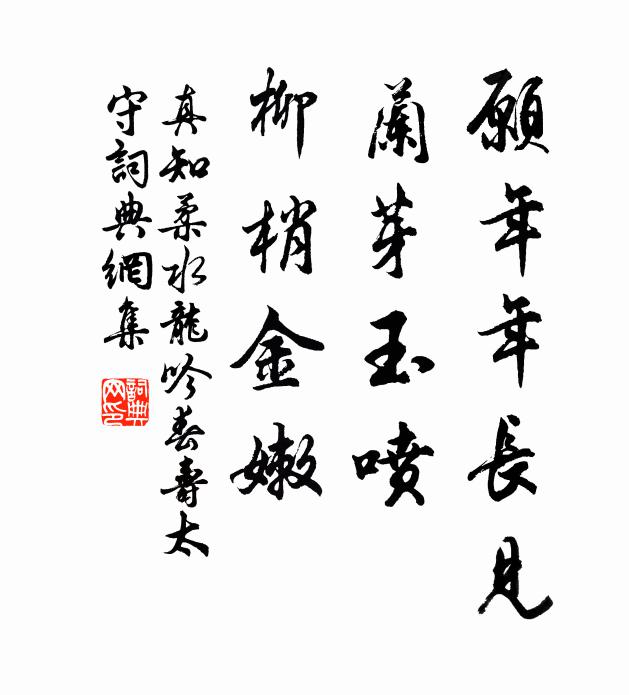 願年年長見
蘭芽玉噴
柳梢金嫩
真知柔水龍吟春壽太
守詞典網集
詞典
网印